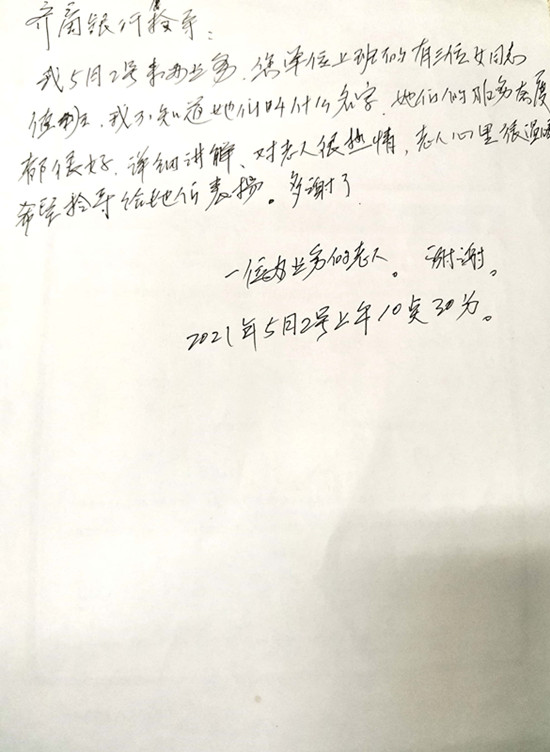 齐商银行领导：
我5月2号来办业务，您单位上班的有三位女同志
值班，我不知道她们叫什么名字，她们的服务态度
都很好，详细讲解、对老人很热情，老人心里很温暖
希望领导给她们表扬。多谢了
一位办业务的老人。谢谢。
2021年5月2号上午10点30分。